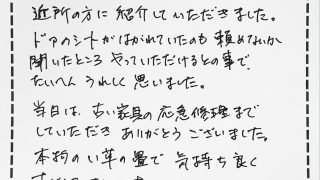 近所の方に紹介していただきました。
ドアのシートがはがれていたのも頼めないか
聞いたところやっていただけるとの事で
たいへんうれしく思いました。
当日は、古い家具の応急修理まで
していただきありがとうございました。
本物のい草の畳で気持ち良く